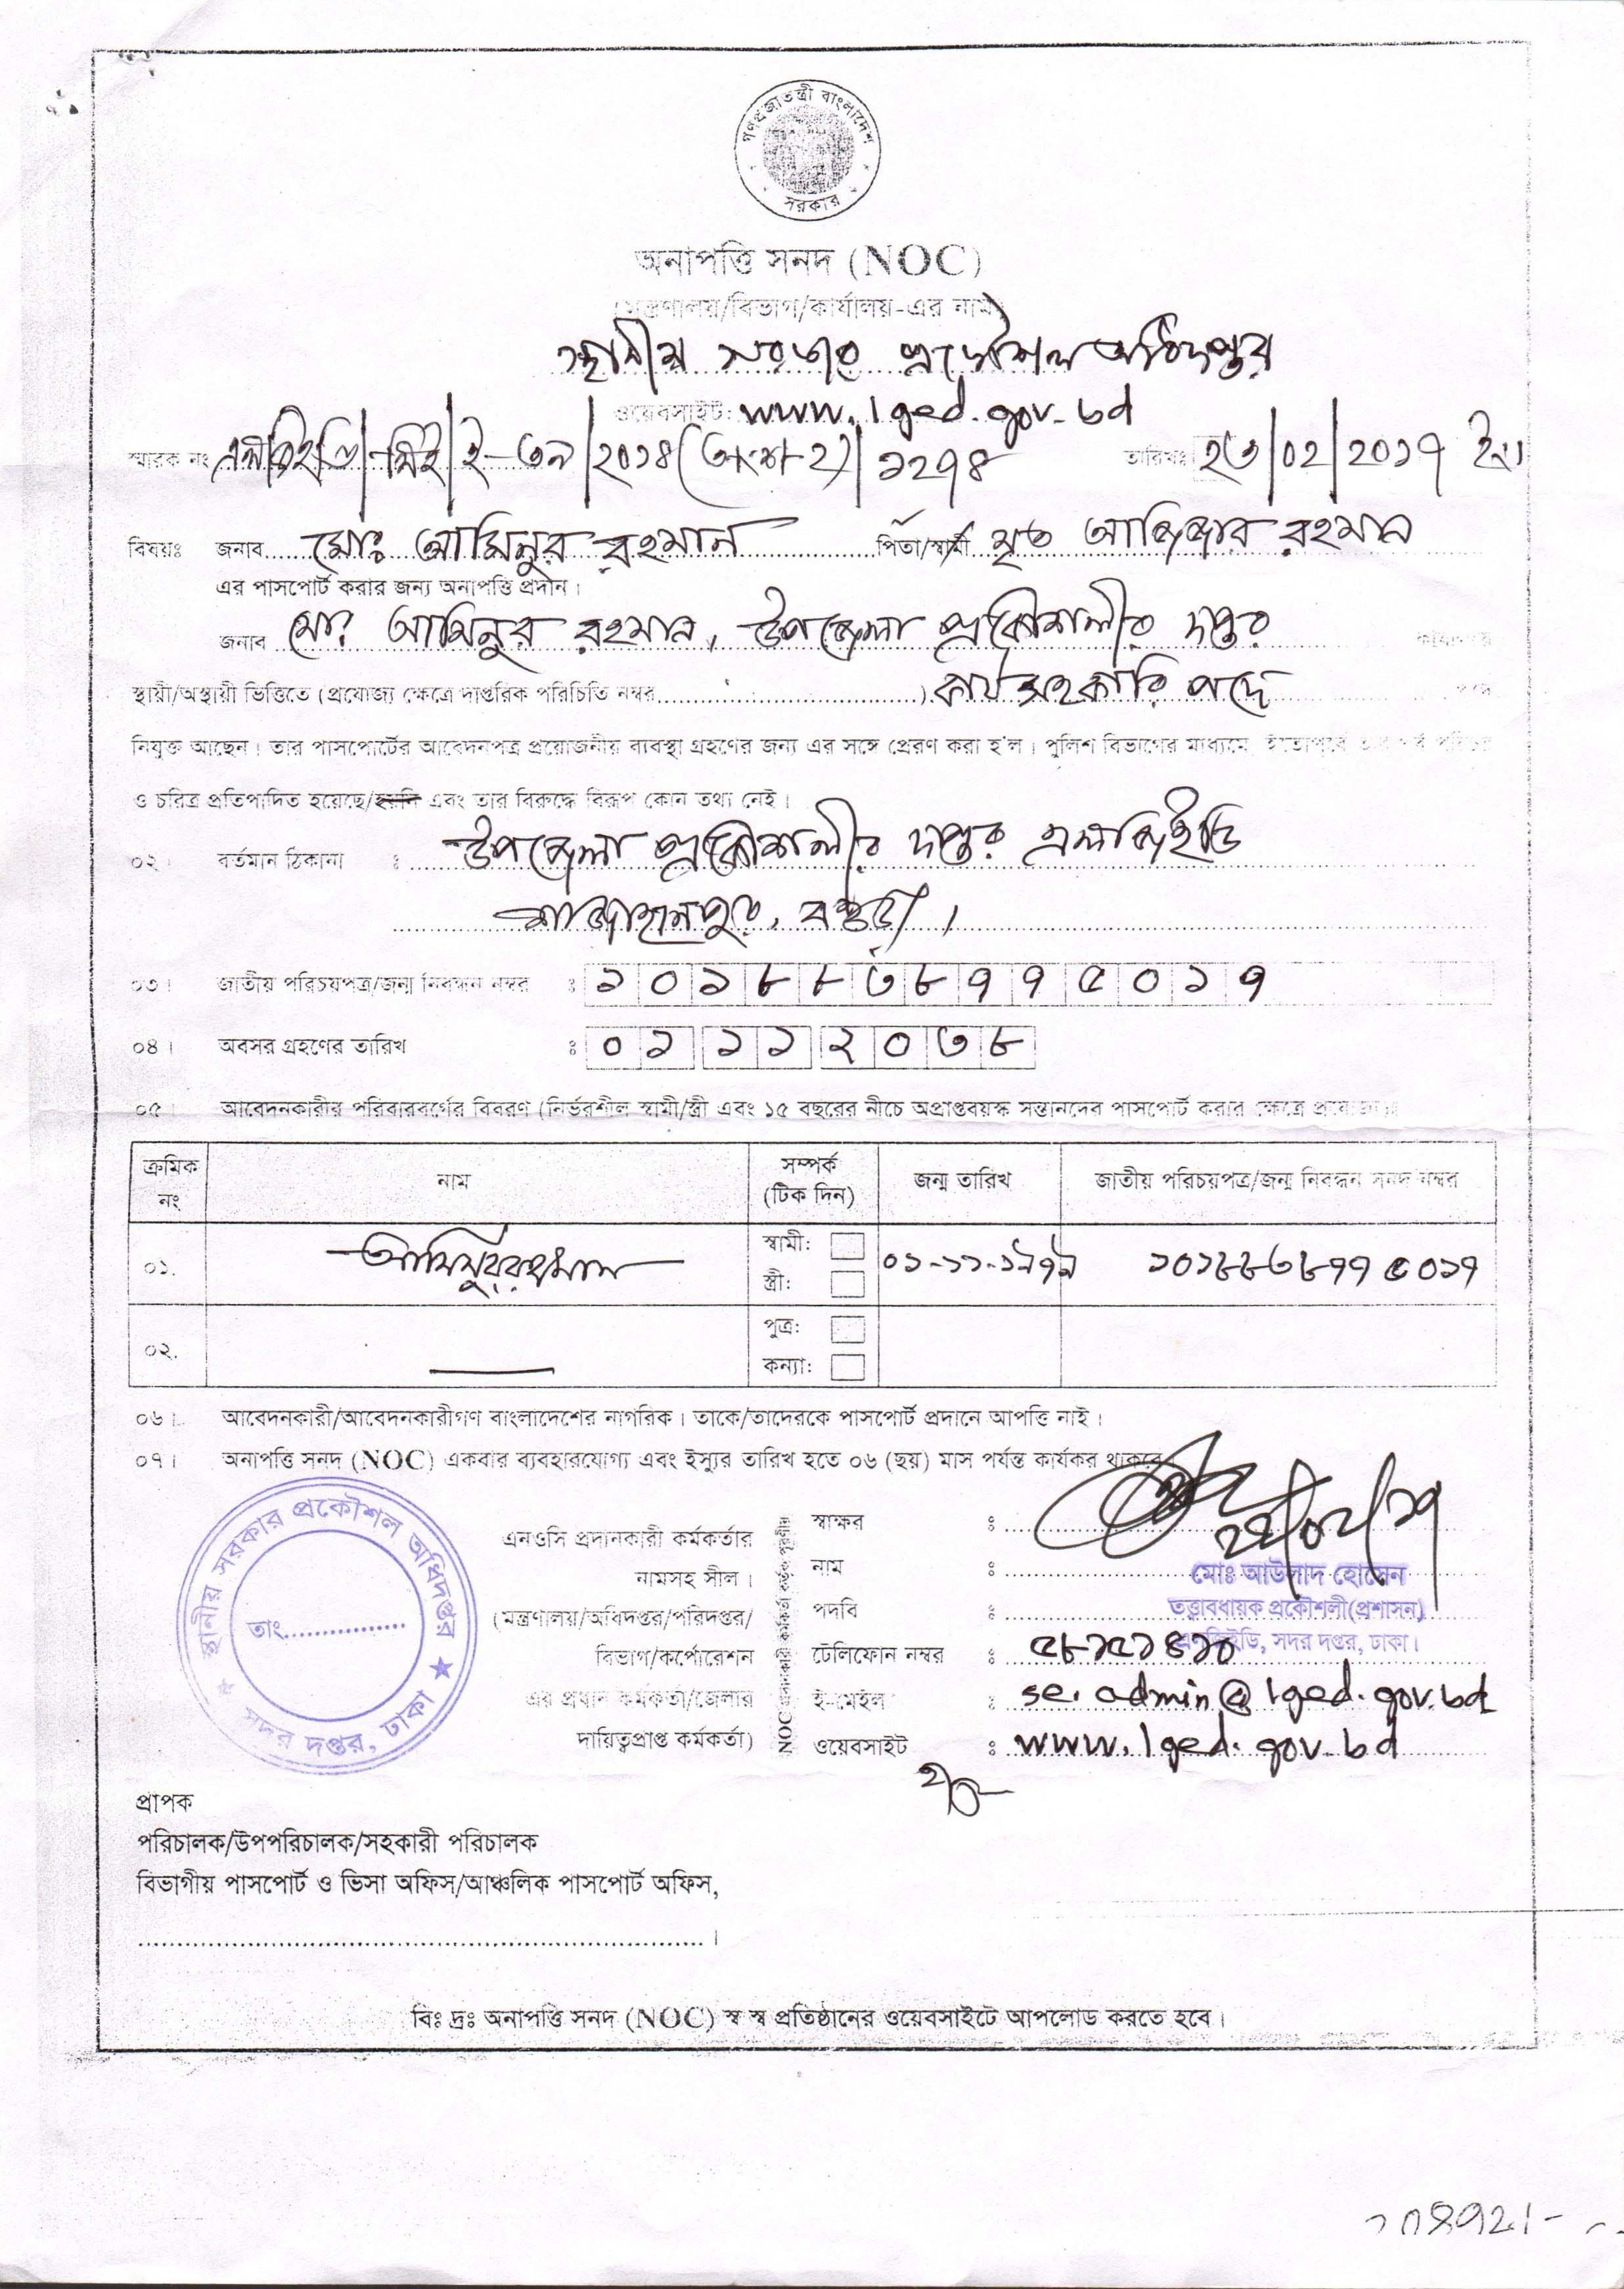 গণপ্রজাতন্ত্রী বাংলাদেশ
সরকার
অনাপত্তি সনদ (NOC)
(মন্ত্রণালয়/বিভাগ/কার্যালয়-এর নাম)
স্থানীয় সরকার প্রকৌশল অধিদপ্তর
ওয়েবসাইট: www.lged.gov.bd
স্মারক নং এলজিইডি/সিই/ই-৩৯/২০১৪(অংশ-২)/১২৭৪ তারিখঃ ২৩/০২/২০১৭ ইং
বিষয়ঃ জনাব মোঃ আমিনুর রহমান পিতা/স্বামী মৃত আজিজার রহমান
এর পাসপোর্ট করার জন্য অনাপত্তি প্রদান।
জনাব মোঃ আমিনুর রহমান, উপজেলা প্রকৌশলীর দপ্তর
স্থায়ী/অস্থায়ী ভিত্তিতে (প্রযোজ্য ক্ষেত্রে দাপ্তরিক পরিচিতি নম্বর....................) কার্য সহকারি পদে
নিযুক্ত আছেন। তার পাসপোর্টের আবেদনপত্র প্রয়োজনীয় ব্যবস্থা গ্রহণের জন্য এর সঙ্গে প্রেরণ করা হ'ল। পুলিশ বিভাগের মাধ্যমে ইতোপূর্বে তার পূর্ব পরিচয়
ও চরিত্র প্রতিপাদিত হয়েছে/হয়নি এবং তার বিরুদ্ধে বিরূপ কোন তথ্য নেই।
০২। বর্তমান ঠিকানা : উপজেলা প্রকৌশলীর দপ্তর এলজিইডি
শাজাহানপুর, বগুড়া।
০৩। জাতীয় পরিচয়পত্র/জন্ম নিবন্ধন নম্বর : ১০১৮৮৩৮৭৭৫০১৭
০৪। অবসর গ্রহণের তারিখ : ০১ ১১ ২০৩৮
০৫। আবেদনকারীর পরিবারবর্গের বিবরণ (নির্ভরশীল স্বামী/স্ত্রী এবং ১৫ বছরের নীচে অপ্রাপ্তবয়স্ক সন্তানদের পাসপোর্ট করার ক্ষেত্রে প্রযোজ্য)ঃ
ক্রমিক নং নাম সম্পর্ক (টিক দিন) জন্ম তারিখ জাতীয় পরিচয়পত্র/জন্ম নিবন্ধন সনদ নম্বর
০১. আমিনুর রহমান স্বামী: স্ত্রী: ০১-১১-১৯৭৯ ১০১৮৮৩৮৭৭৫০১৭
০২. পুত্র: কন্যা:
০৬। আবেদনকারী/আবেদনকারীগণ বাংলাদেশের নাগরিক। তাকে/তাদেরকে পাসপোর্ট প্রদানে আপত্তি নাই।
০৭। অনাপত্তি সনদ (NOC) একবার ব্যবহারযোগ্য এবং ইস্যুর তারিখ হতে ০৬ (ছয়) মাস পর্যন্ত কার্যকর থাকবে
স্থানীয় সরকার প্রকৌশল অধিদপ্তর
তাং..................
সদর দপ্তর, ঢাকা
এনওসি প্রদানকারী কর্মকর্তার
নামসহ সীল।
(মন্ত্রণালয়/অধিদপ্তর/পরিদপ্তর/
বিভাগ/কর্পোরেশন
এর প্রধান কর্মকর্তা/জেলার
দায়িত্বপ্রাপ্ত কর্মকর্তা)
NOC প্রদানকারী কর্মকর্তা কর্তৃক পূরণীয়
স্বাক্ষর :
নাম : মোঃ আউলাদ হোসেন
পদবি : তত্ত্বাবধায়ক প্রকৌশলী(প্রশাসন)
এলজিইডি, সদর দপ্তর, ঢাকা।
টেলিফোন নম্বর : ৫৮১৫১৪১০
ই-মেইল : se.admin@lged.gov.bd
ওয়েবসাইট : www.lged.gov.bd
প্রাপক
পরিচালক/উপপরিচালক/সহকারী পরিচালক
বিভাগীয় পাসপোর্ট ও ভিসা অফিস/আঞ্চলিক পাসপোর্ট অফিস,
..................................................।
বিঃ দ্রঃ অনাপত্তি সনদ (NOC) স্ব স্ব প্রতিষ্ঠানের ওয়েবসাইটে আপলোড করতে হবে।